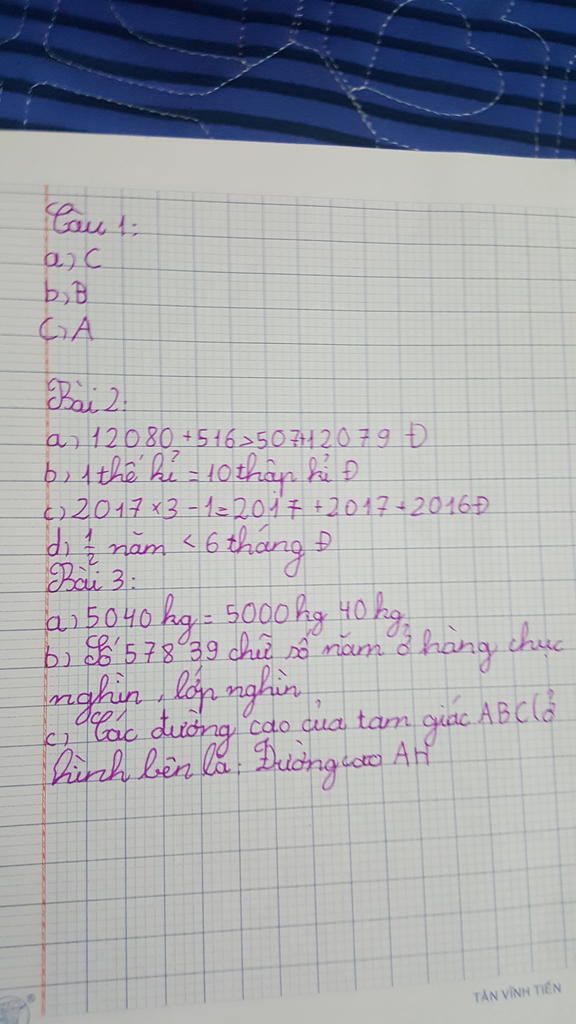 Câu 1:
a, C
b, B
C, A
Bài 2:
a, 12080 + 516 > 507 + 12079 Đ
b, 1 thế kỉ = 10 thập kỉ Đ
c, 2017 × 3 - 1 = 2017 + 2017 + 2016 Đ
d, 1/2 năm < 6 tháng Đ
Bài 3:
a, 5040 kg = 5000 kg 40 kg
b, Số 578 39 chữ số năm ở hàng chục
nghìn, lớp nghìn
c, Các đường cao của tam giác ABC (ở
hình bên là: Đường cao AH
TÂN VĨNH TIẾN